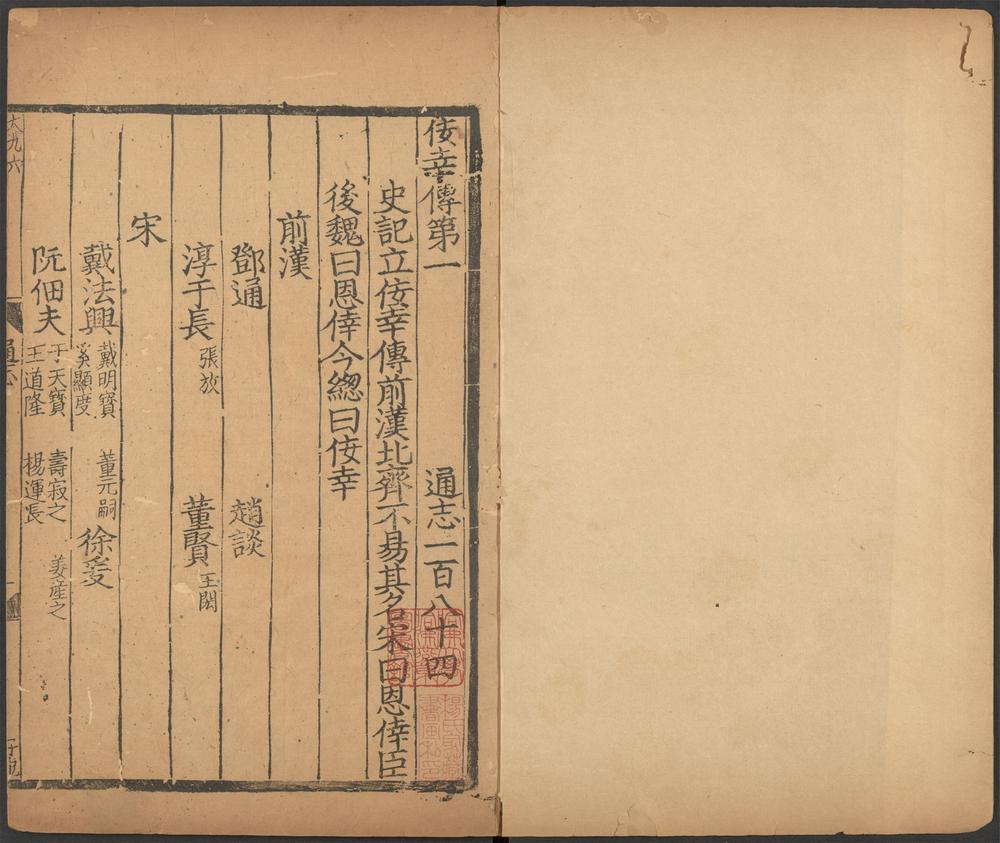 佞幸傳第一 通志一百八十四
史記立佞幸傳前漢北齊不易其名宋曰恩倖臣
後魏曰恩倖今緫曰佞幸
前漢
鄧通 趙談
淳于長 張放 董賢 王閎
宋
戴法興 戴明寶 奚顯度 董元嗣 徐爰
阮佃夫 于天寶 王道隆 壽寂之 楊運長 姜産之
大九六
通志